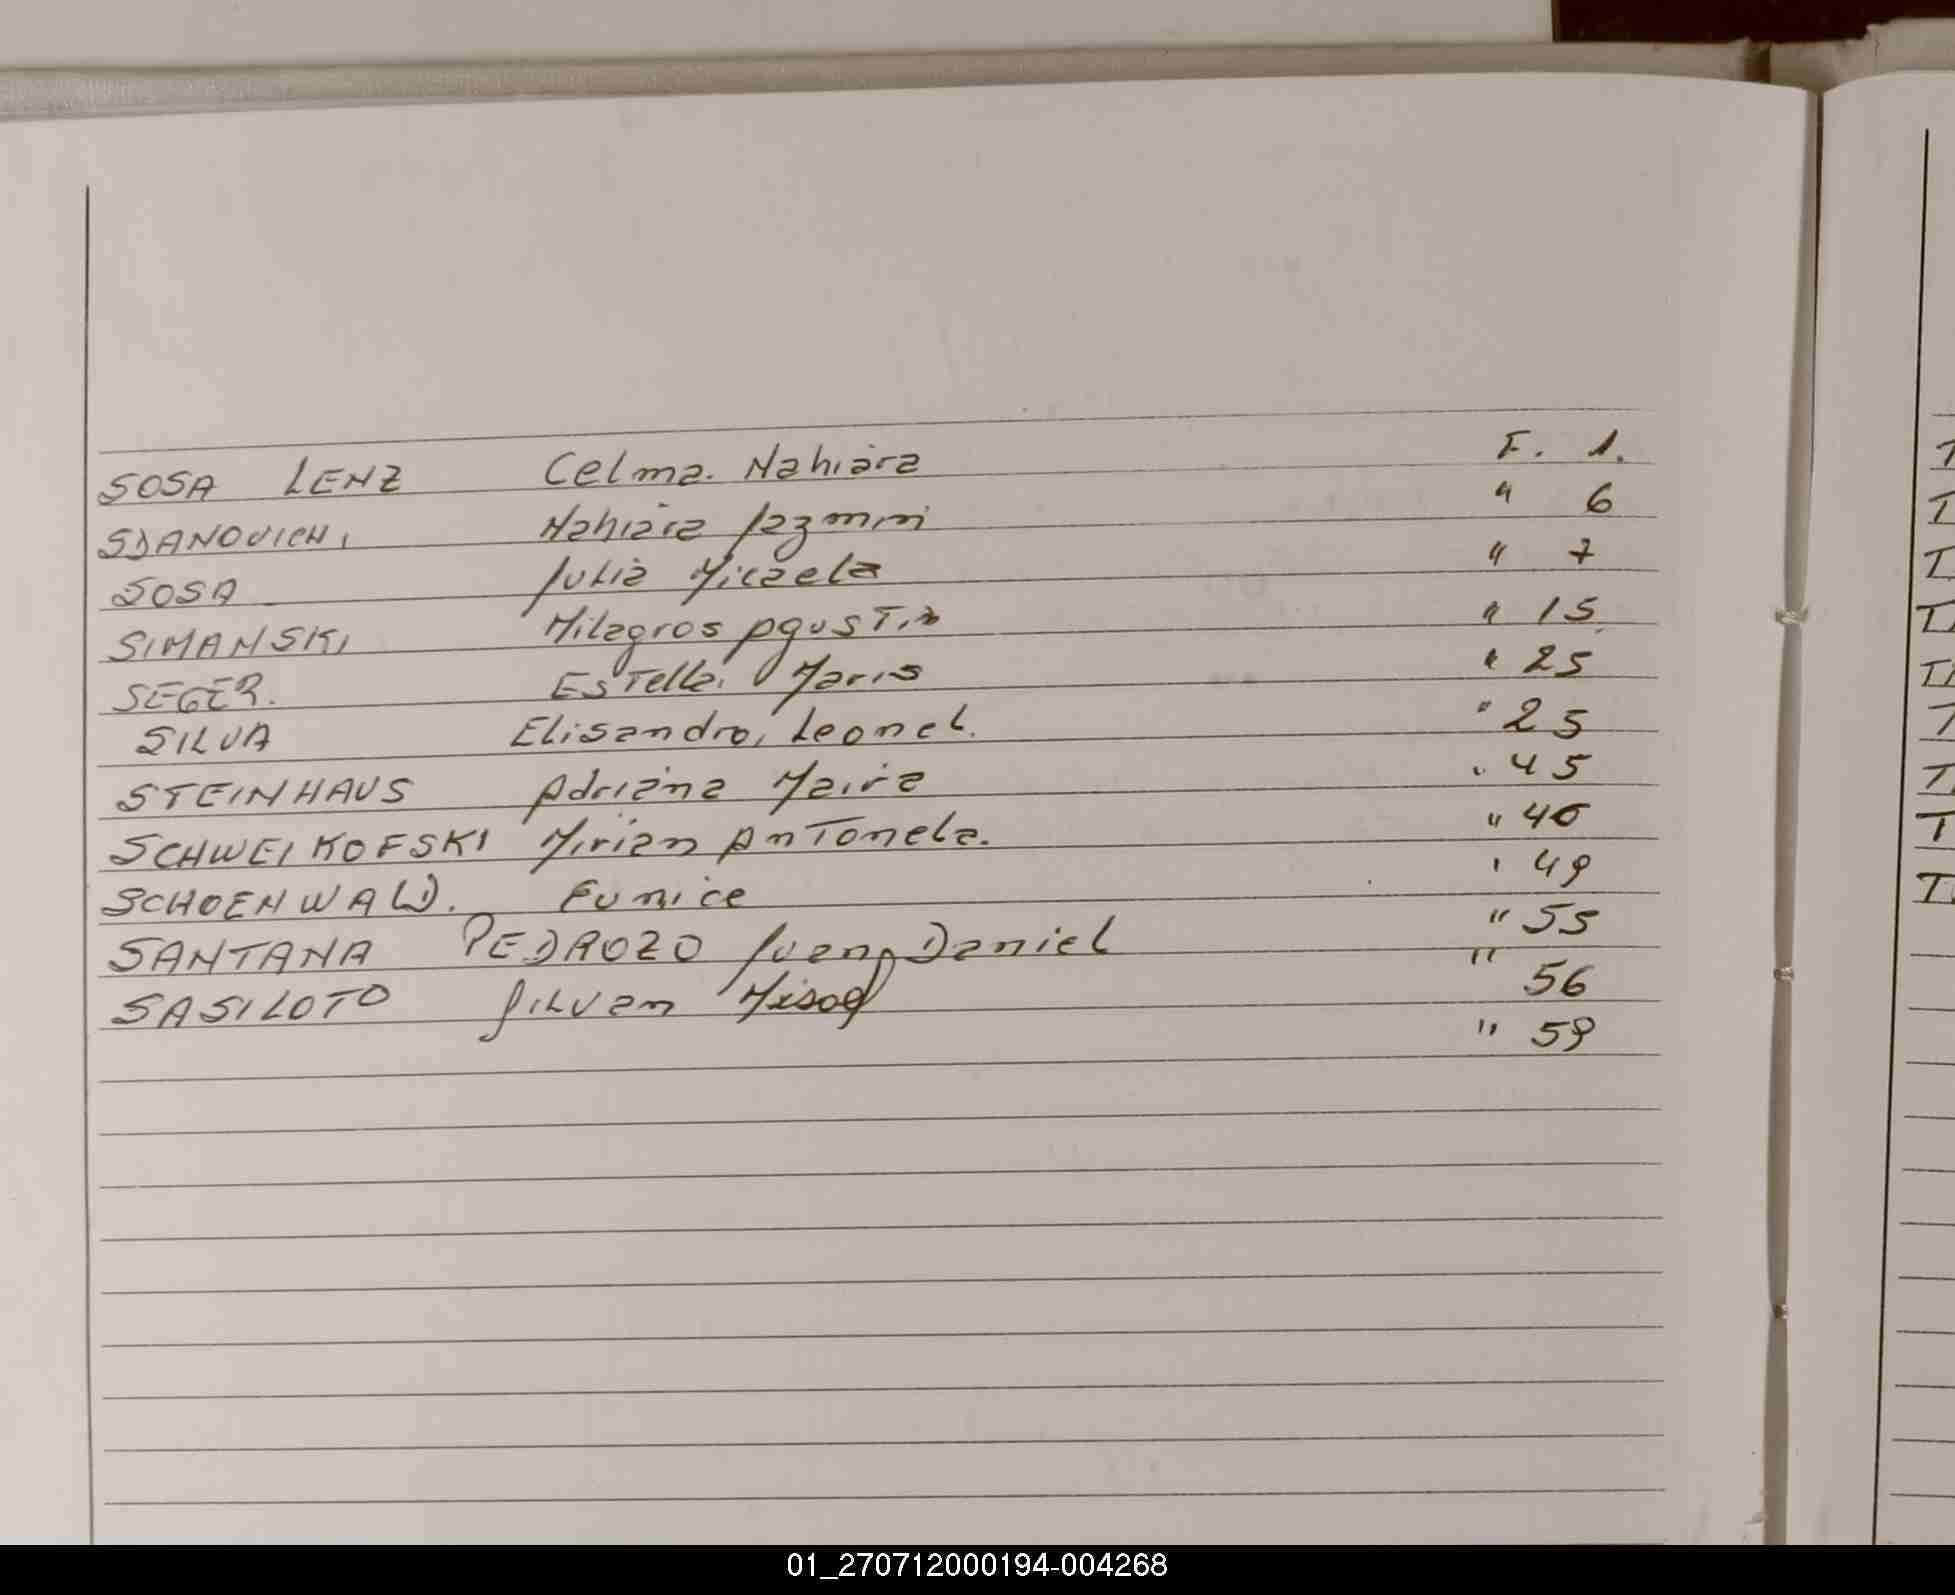 SOSA LENZ Celma. Nahiara F. 1.
SDANOVICH, Nahiara Jazmin " 6
SOSA Julia Micaela " 7
SIMANSKI Milagros Agustin " 15
SEGER. Estella. Maris " 25
SILVA Elisandro, Leonel. " 25
STEINHAUS Adriana Maira " 45
SCHWEIKOFSKI Mirian Antonela. " 46
SCHOENWALD. Eunice " 49
SANTANA PEDROZO Juan Daniel " 55
SASILOTO Gilvan " 56
" 59
01_270712000194-004268